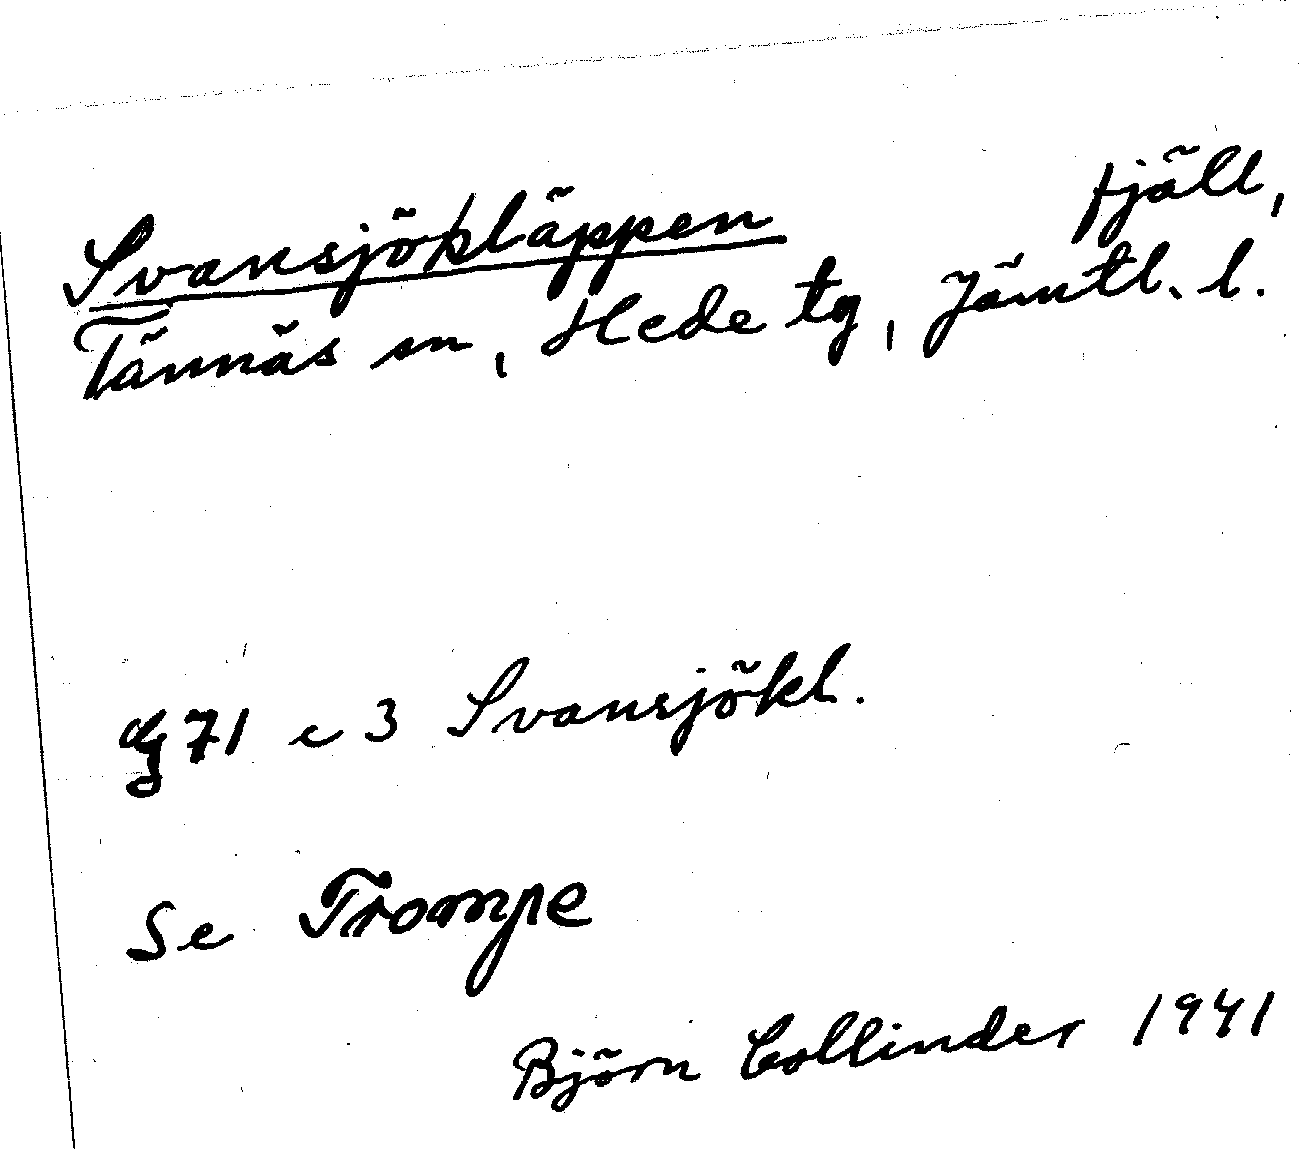 Svansjökläppen fjäll,
Tännäs sn, Hede tg, Jämtl. l.
71 c 3 Svansjökl.
Se Trompe
Björn Collinder 1941